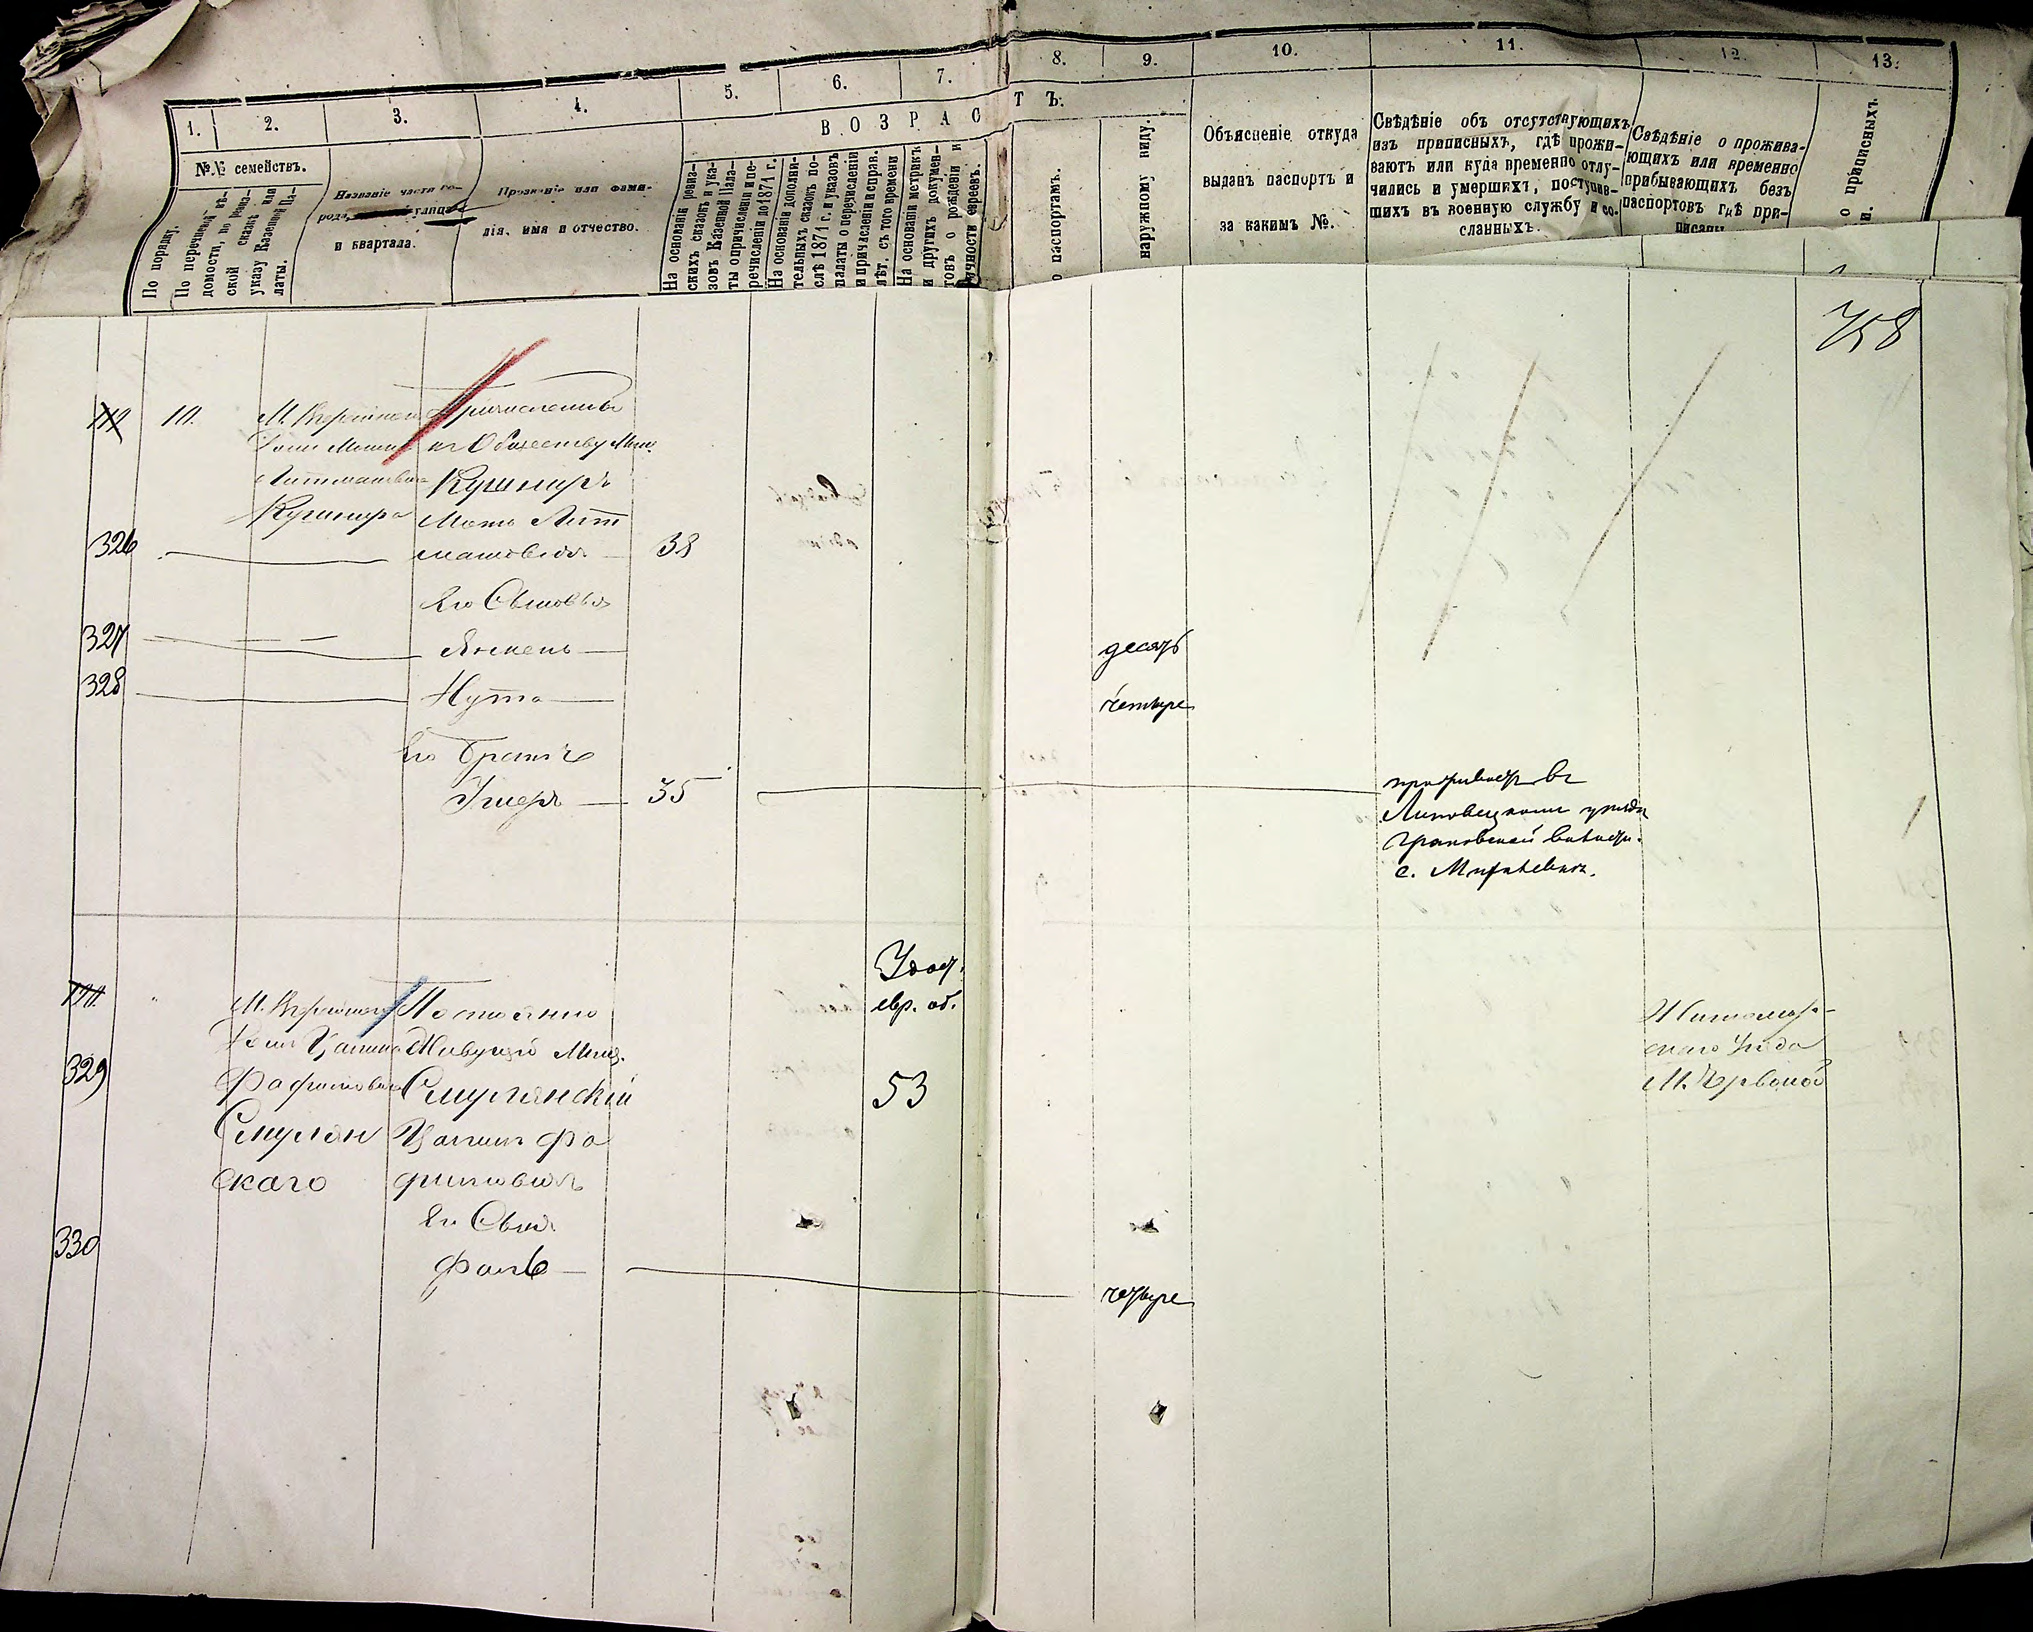 1.
2.
3.
4.
5.
6.
7.
8.
9.
10.
11.
12.
13.
ВОЗРАСТЪ.
№№ семействъ.
По порядку.
По перечневой вѣ-
домости, по ревиз-
ской сказкѣ или
указу Казенной Па-
латы.
Названіе части го-
рода, улицы
и квартала.
Прозваніе или фами-
лія, имя и отчество.
На основаніи ревиз-
скихъ сказокъ и ука-
зовъ Казенной Пала-
ты о причисленіи и пе-
речисленіи до 1871 г.
На основаніи дополни-
тельныхъ сказокъ по-
слѣ 1871 г. и указовъ
палаты о перечисленіи
и причисленіи и справ.
лѣт. съ того времени
На основаніи метрикъ
и другихъ докумен-
товъ о рожденіи и
личности евреевъ.
о паспортамъ.
наружному виду.
Объясненіе откуда
выданъ паспортъ и
за какимъ №.
Свѣдѣніе объ отсутствующихъ
изъ приписныхъ, гдѣ прожи-
ваютъ или куда временно отлу-
чились и умершихъ, поступив-
шихъ въ военную службу и со-
сланныхъ.
Свѣдѣніе о прожива-
ющихъ или временно
прибывающихъ безъ
паспортовъ гдѣ при-
писаны
о приписныхъ
и.
758
119
111.
Причисленный
къ Обществу Мѣщ.
Кушниръ
Кушнира
326
38
Его Сыновья
327
Янкель
десять
328
Нута
четыре
Его Братъ
Ушеръ
35
проживаетъ въ
Липовецкомъ уѣздѣ
Грановской волости.
с.
Удост.
евр. об.
Постоянно
Живущій Мѣщ.
329
Смулянскій
53
Житомир-
скаго Уѣзда
М. Червоной
Смулян
скаго
Его Сынъ
330
четыре